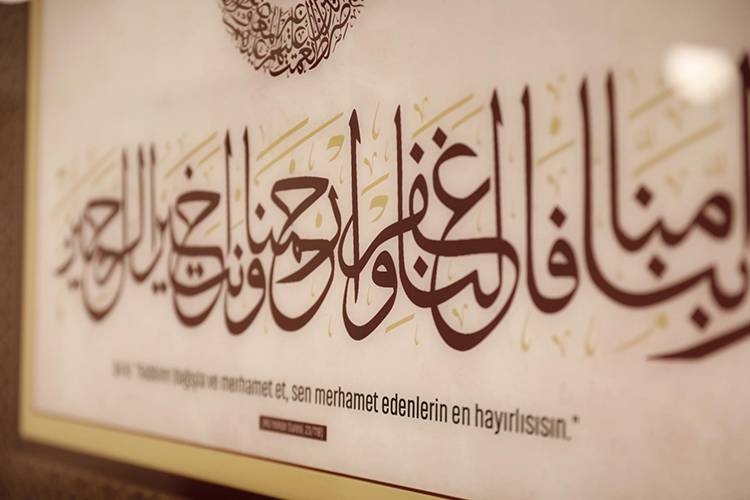 انعمت عليهم
ربنا امنا فاغفر لنا وارحمنا وانت خير الرحمين
De ki: "Rabbim! Bağışla ve merhamet et, sen merhamet edenlerin en hayırlısısın."